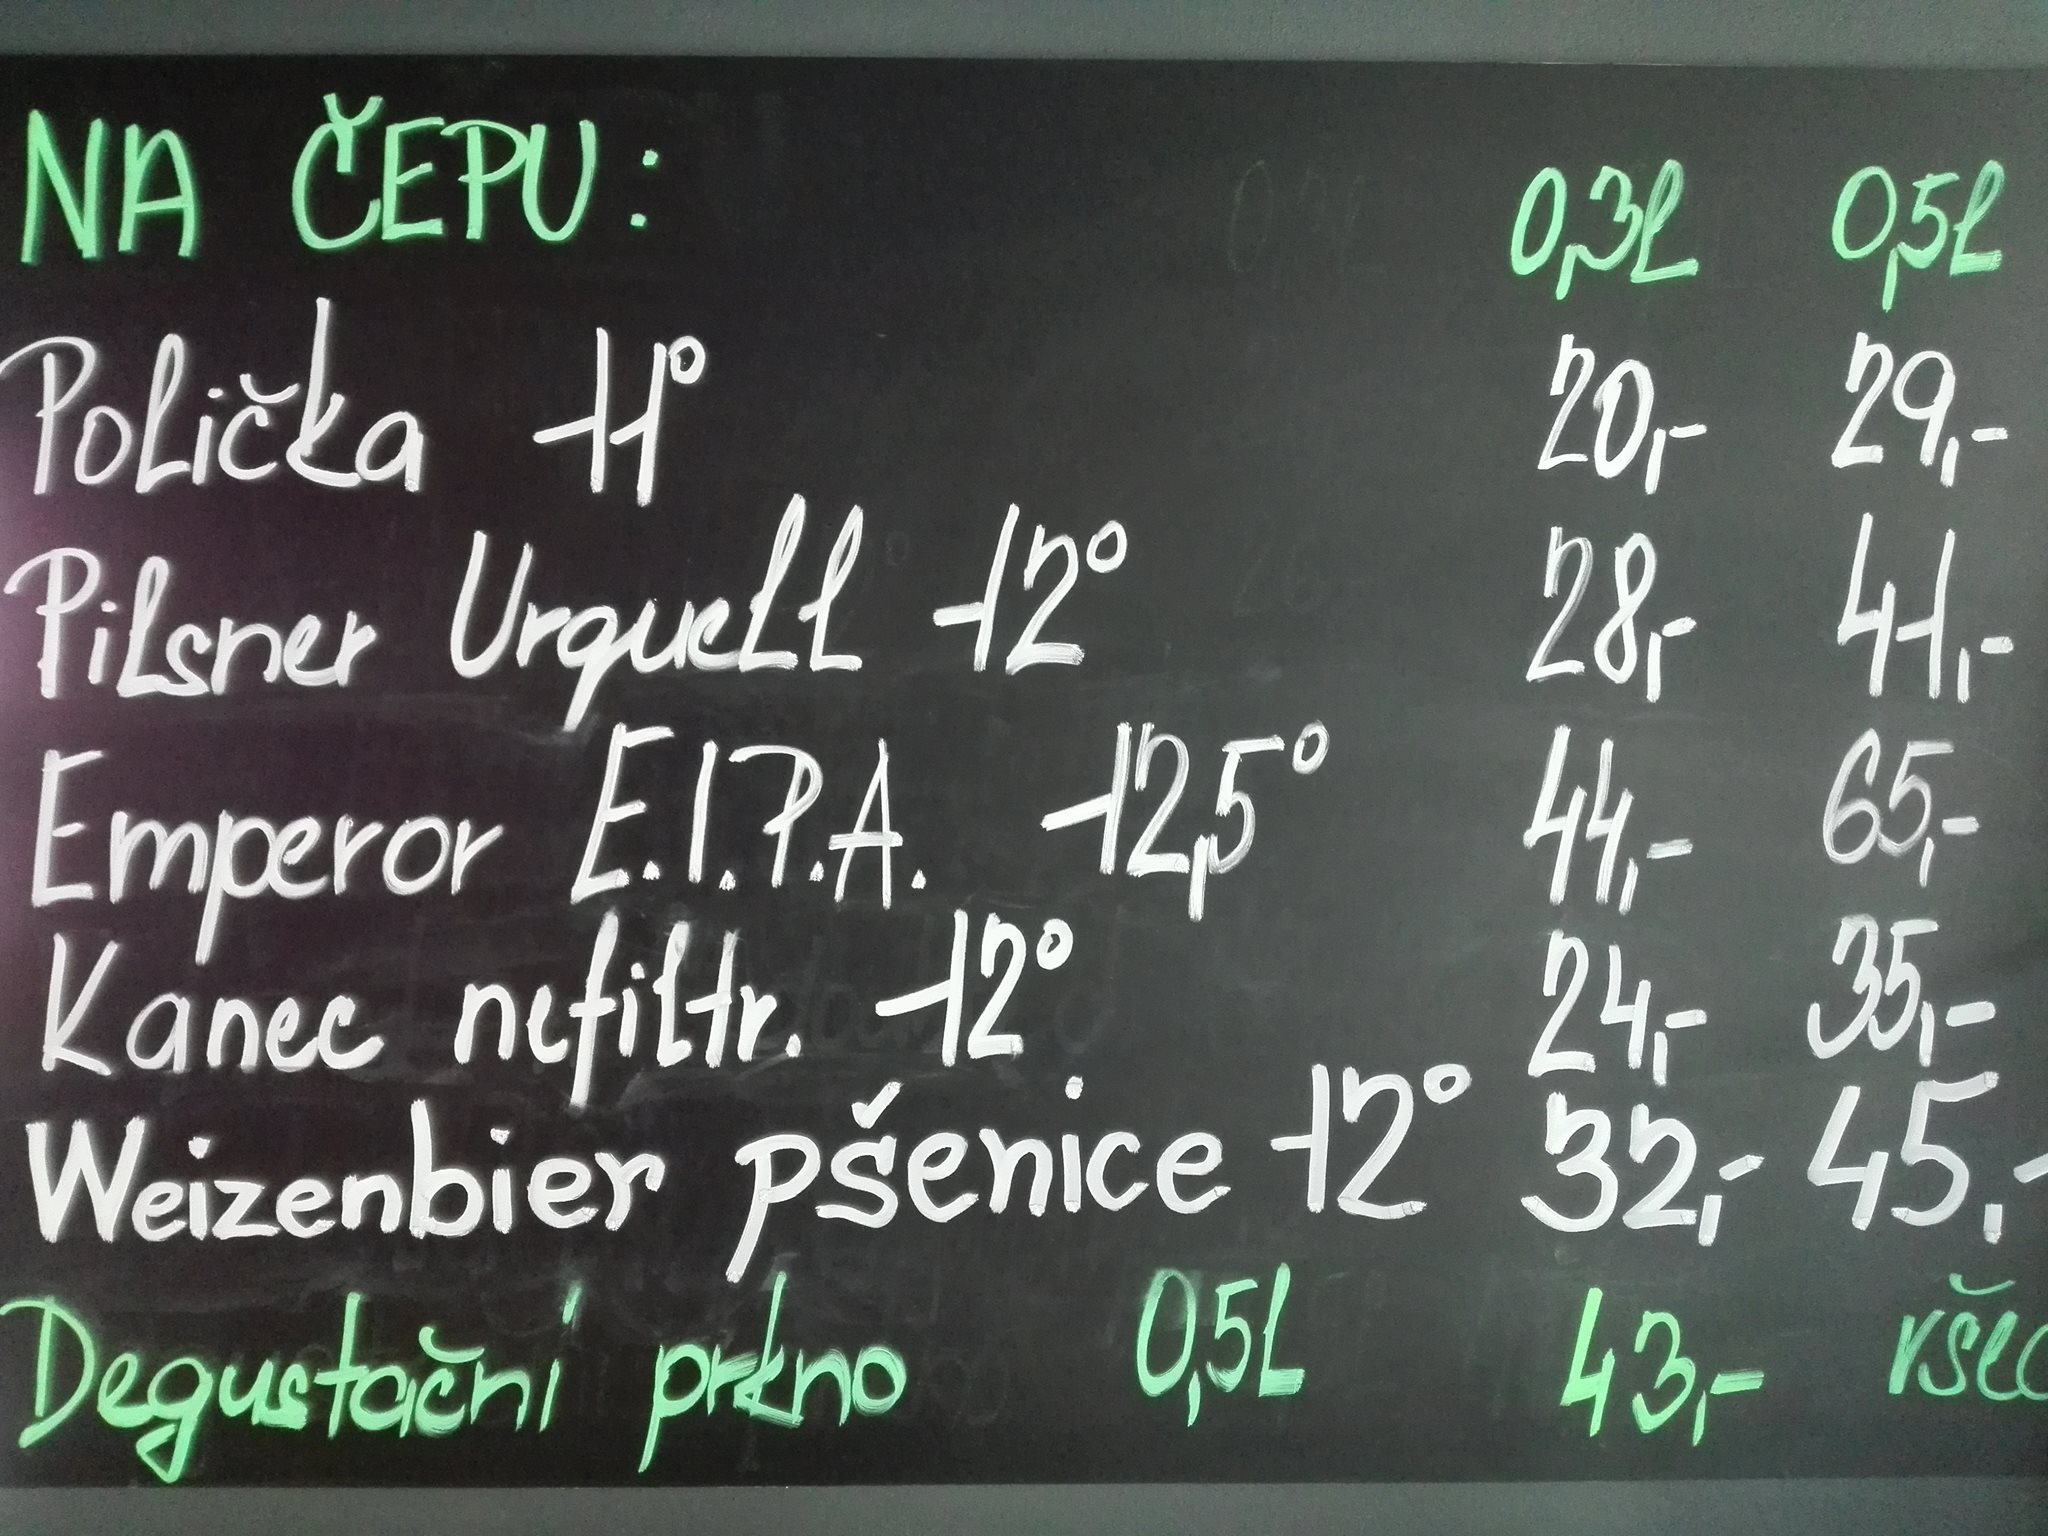 NA ČEPU: 0,3L 0,5L
Polička 11° 20,- 29,-
Pilsner Urquell 12° 28,- 41,-
Emperor E.I.P.A. 12,5° 44,- 65,-
Kanec nefiltr. 12° 24,- 35,-
Weizenbier pšenice 12° 32,- 45,-
Degustační prkno 0,5L 43,-